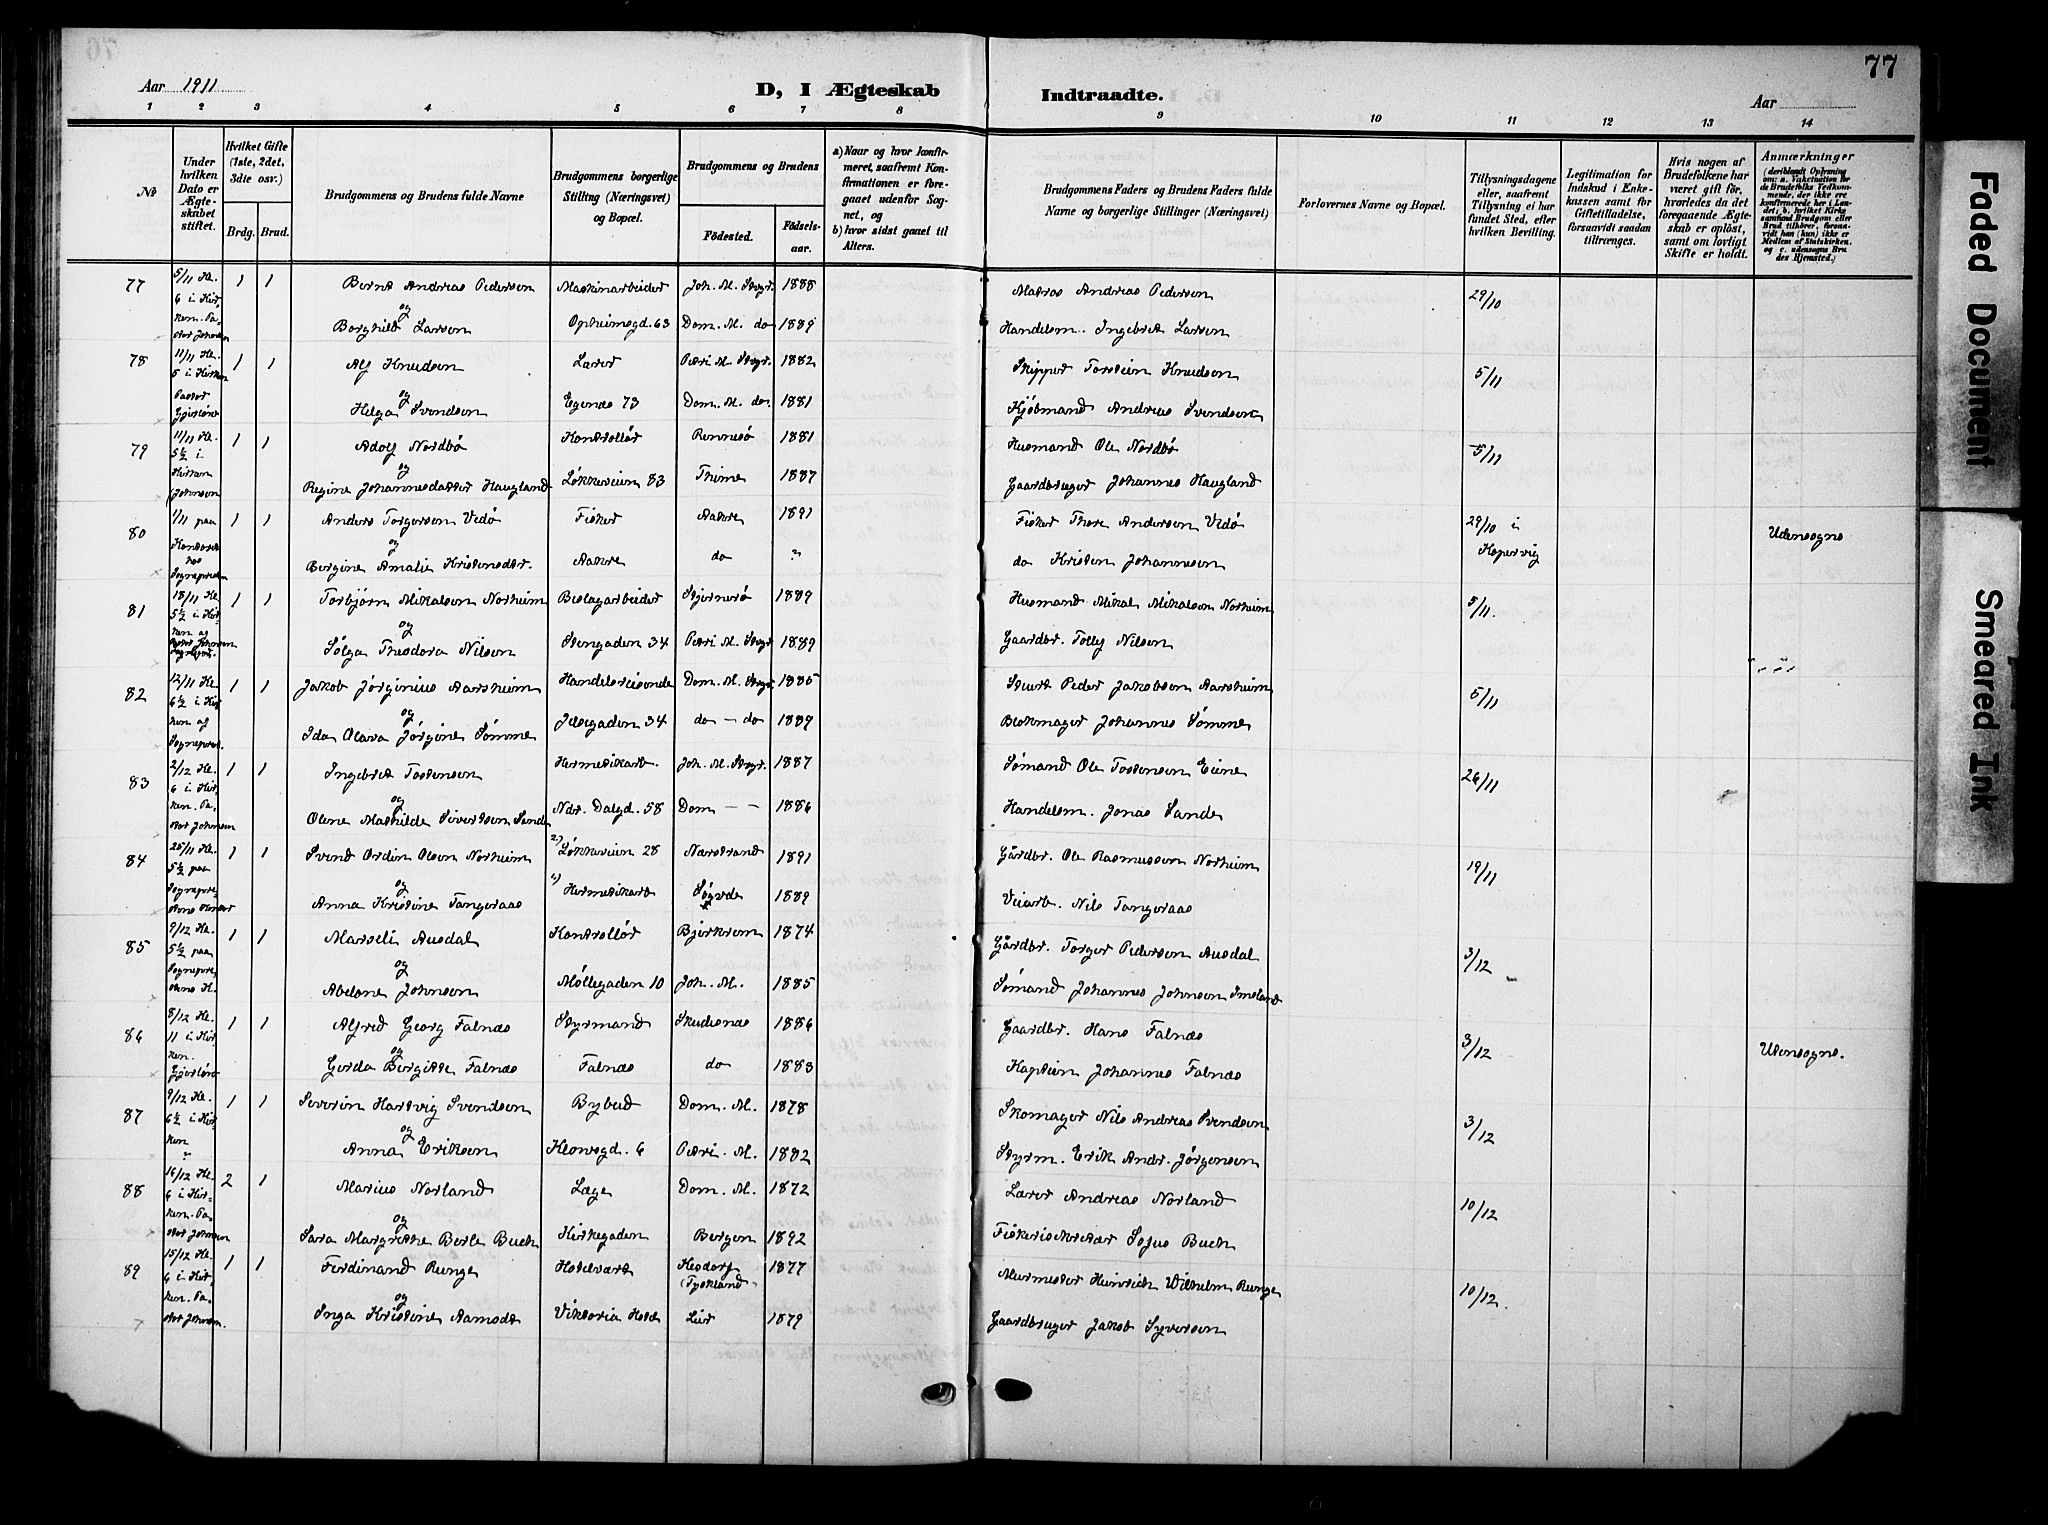 76
Aar 1911
D, I Ægteskab Indtraadte.
77
Aar
1 2 3 4 5 6 7 8 9 10 11 12 13 14
No
Under hvilken Dato er Ægteskabet stiftet.
Hvilket Gifte (1ste, 2det, 3die osv.)
Brdg. Brud.
Brudgommens og Brudens fulde Navne
Brudgommens borgerlige Stilling (Næringsvei) og Bopæl.
Brudgommens og Brudens
Fødested. Fødselsaar.
a) Naar og hvor konfirmeret, saafremt Konfirmationen er foregaaet udenfor Sognet, og
b) hvor sidst gaaet til Alters.
Brudgommens Faders og Brudens Faders fulde Navne og borgerlige Stillinger (Næringsvei)
Forlovernes Navne og Bopæl.
Tillysningsdagene eller, saafremt Tillysning ei har fundet Sted, efter hvilken Bevilling.
Legitimation for Indskud i Enkekassen samt for Giftetilladelse, forsaavidt saadan tiltrænges.
Hvis nogen af Brudefolkene har været gift før, hvorledes da det foregaaende Ægteskab er opløst, samt om lovligt Skifte er holdt.
Anmærkninger
77 5/11 Kl. 6 i Kirken. Pastor Johnsen 1 1 Bernt Andreas Pedersen Maskinarbeider Joh. M. Stvgr. 1888 Matros Andreas Pedersen 29/10
og
Borghild Larsen Opheimsgd. 63 Dom. M. do 1889 Handelsm. Ingebret Larsen
78 11/11 Kl. 5 i Kirken Pastor Gjerløw 1 1 Alf Knudsen Lærer Petri M. Stvgr. 1882 Skipper Torstein Knudsen 5/11
og
Helga Svendsen Egenæs 73 Dom. M. do. 1881 Kjøbmand Andreas Svendsen
79 11/11 Kl. 5½ i Kirken Johnsen 1 1 Adolf Nordbø Kontrollør Rennesø 1881 Husmand Ole Nordbø 5/11
og
Regine Johannesdatter Haugland Løkkeveien 83 Thime 1887 Gaardbruger Johannes Haugland
80 1/11 paa Kontoret hos Sognepresten 1 1 Anders Torgersen Vedø Fisker Aakre 1891 Fisker Thore Andersen Vedø 29/10 i Kopervig Udensogns
og
Bergine Amalie Kristensdtr. Aakre do " do Kristen Johannesen
81 18/11 Kl. 5½ i Kirken 1 1 Torbjørn Mikalsen Norheim Bolagarbeider Stjernerø 1889 Husmand Mikal Mikalsen Norheim 5/11.
og
Sølga Theodora Nilsen Stengaden 34 Petri M. Stvgr 1889 Gaardbr. Tolly Nilsen
82 12/11 Kl. 6½ i Kirken af Sognepres. 1 1 Jakob Jørginius Aarsheim Handelsreisende Dom. M. Stvgr. 1885 Stuert Peder Jakobsen Aarsheim 5/11
og
Ida Olava Jørgine Sømme Jelsegaden 34 do - do 1889 Blokmager Johannes Sømme
83 2/12 Kl. 6 i Kirken. Pastor Johnsen 1 1 Ingebret Tostensen Hermetikarb. Joh. M. Stvgr. 1887 Sømand Ole Tostensen Eiene 26/11
og
Olene Mathilde Sivertsen Sande Ndr. Dalgd. 58 Dom - - 1886 Handelsm. Jonas Sande
84 25/11 Kl. 5½ paa Sogneprestens Kontor 1 1 Svend Ordin Olsen Norheim 2) Løkkeveien 28 Nærstrand 1891 Gårdbr. Ole Rasmussen Norheim 19/11
og
Anna Kristine Tangeraas 1) Hermetikarb Søgnde 1889 Veiarb. Nils Tangeraas
85 9/12 Kl. 5½ paa Sogneprestens K. 1 1 Marseli Ausdal Kontrollør Bjerkrem 1874 Gårdbr. Torger Pedersen Ausdal 3/12
og
Abelone Johnsen Møllegaden 10 Joh. M. 1885 Sømand Johannes Johnsen Imsland
86 8/12 Kl. 11 i Kirken. Gjerløw 1 1 Alfred Georg Falnæs Styrmand Skudesnæs 1886 Gaardbr. Hans Falnæs 3/12 Udensogns.
og
Gerda Birgitte Falnæs Falnæs do 1883 Kaptein Johannes Falnæs
87 9/12 Kl. 6½ i Kirken " 1 1 Severin Hartvig Svendsen Bybud Dom. M. 1878 Skomager Nils Andreas Svendsen 3/12
og
Anna Eriksen Kleivsgd. 6 Petri. M. 1882 Styrm. Erik Andr. Jørgensen
88 16/12 Kl. 6 i Kirken. Pastor Johnsen 2 1 Marius Norland Læge Dom. M. 1872 Lærer Andreas Norland 10/12
og
Sara Margrethe Berle Buch Kirkegaden Bergen 1892 Fiskerisekretær Sofus Buch
89 15/12 Kl. 6 i Kirken. Pastor Johnsen. 1 1 Ferdinand Runge Hotelvært Kesdorf (Tyskland) 1877 Murmester Heinrich Wilhelm Runge 10/12.
og
Inga Kristine Aamodt Viktoria Hotel Lier 1879 Gaardbruger Jakob Syversen
Faded Document
Smeared Ink